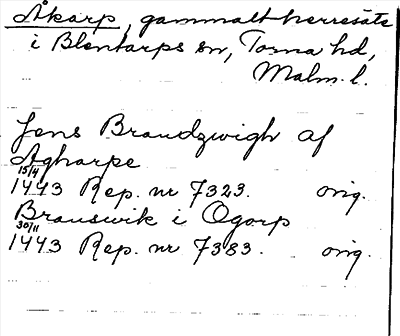 Åkarp, gammalt herresäte
i Blentarps sn, Torna hd,
Malm. l.
Jens Braudzwigh af
Agharpe
15/4
1443 Rep. nr 7323. orig.
Brauswik i Ogorp
30/11
1443 Rep. nr 7383. orig.